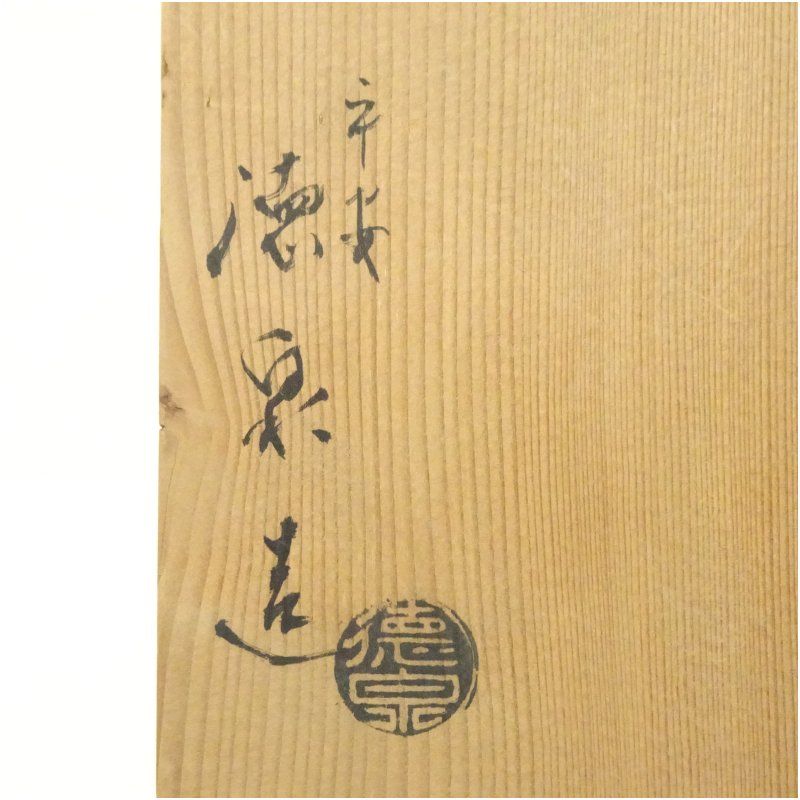 平安
徳泉造
徳泉